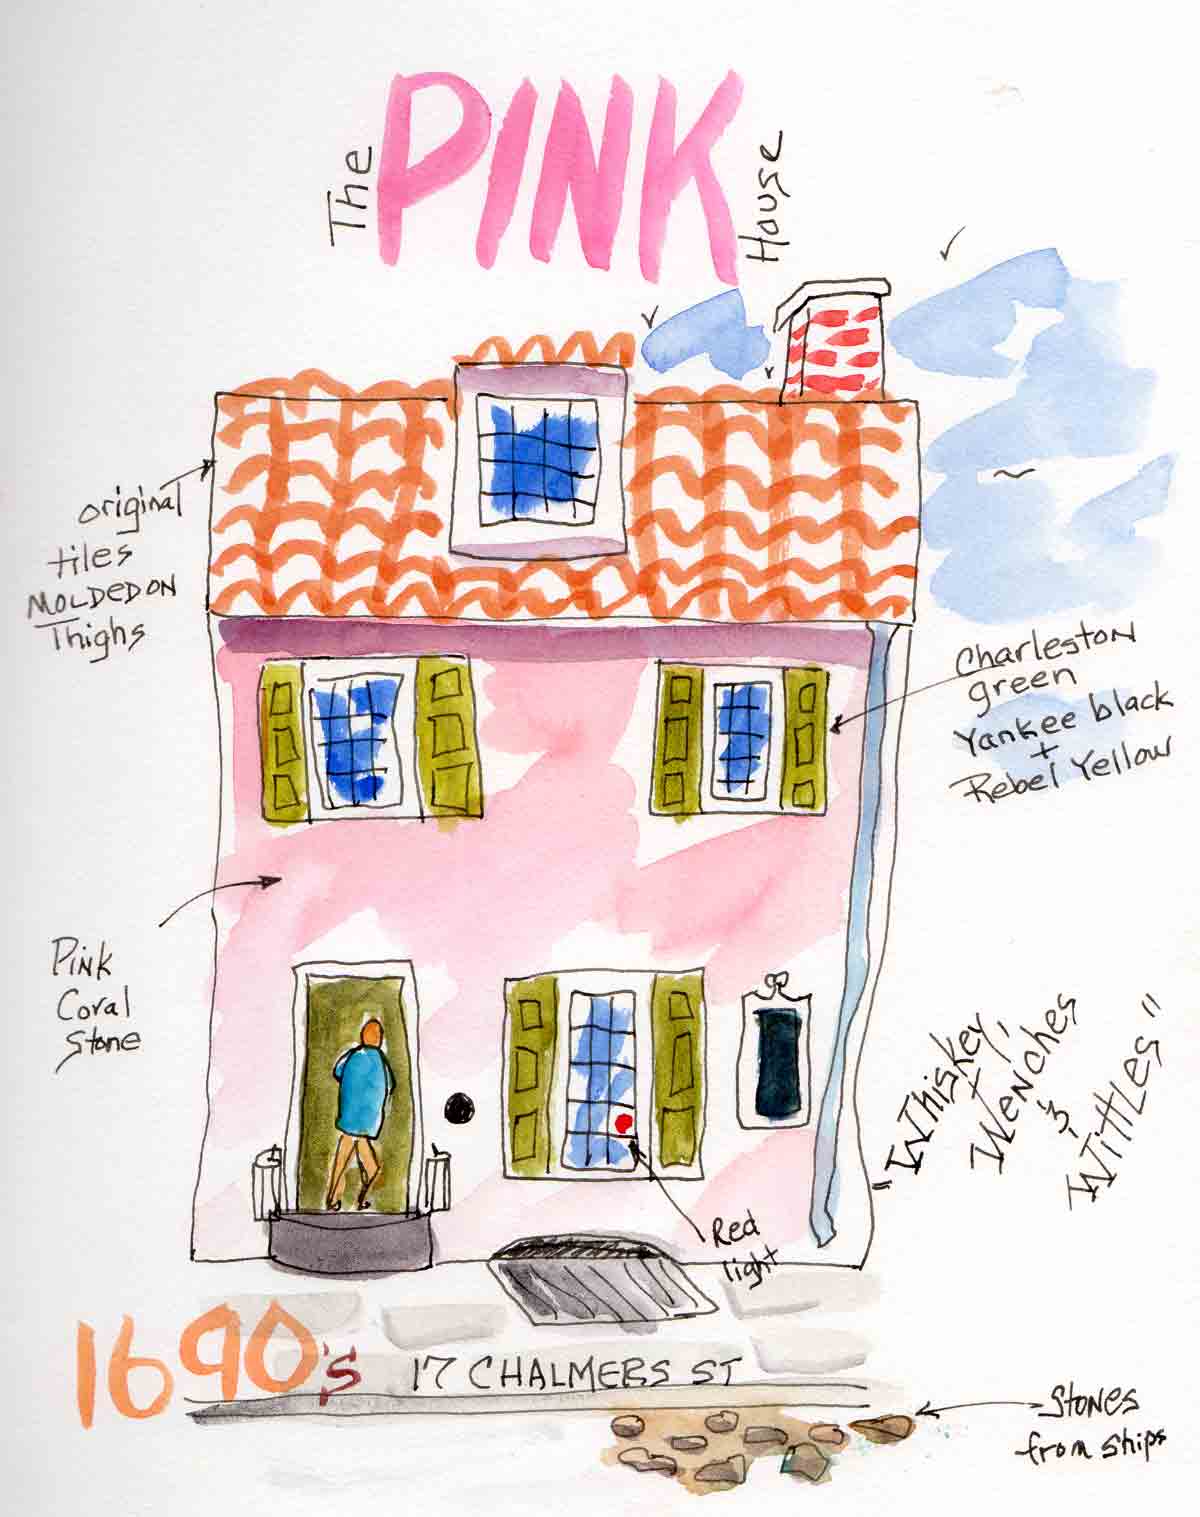 The PINK House
original
tiles
MOLDED ON
Thighs
Charleston
green
Yankee black
+
Rebel Yellow
Pink
Coral
Stone
"Whiskey,
Wenches
&
Wittles"
Red
light
1690's
17 CHALMERS ST
Stones
from ships